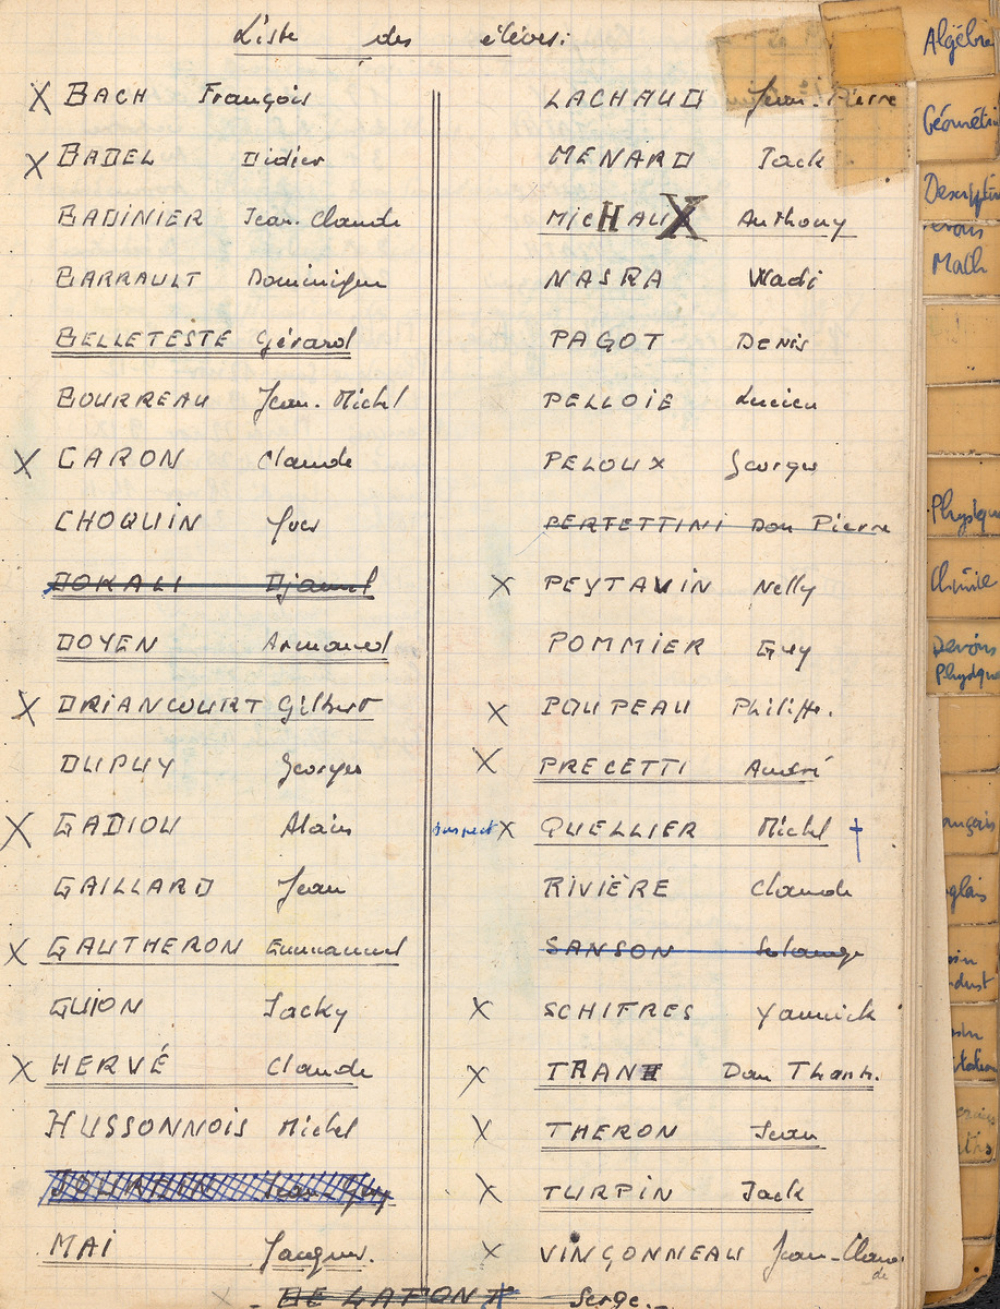 Liste des élèves:
X BACH François
X BADEL Didier
BADINIER Jean-Claude
BARRAULT Dominique
BELLETESTE Gérard
BOURREAU Jean-Michel
X CARON Claude
CHOQUIN Yves
DOKALI Djamel
DOYEN Armand
X DRIANCOURT Gilbert
DUPUY Georges
X GADIOU Alain
GAILLARD Jean
X GAUTHERON Emmanuel
GUION Jacky
X HERVÉ Claude
HUSSONNOIS Michel
MAI Jacques.
LACHAUD Jean-Pierre
MENARD Jack
MICHAUX Anthony
NASRA Wadi
PAGOT Denis
PELLOIE Lucien
PELOUX Georges
PERFETTINI Don Pierre
X PEYTAVIN Nelly
POMMIER Guy
X POUPEAU Philippe.
X PRECETTI André
suspect X QUELLIER Michel †
RIVIÈRE Claude
SANSON Solange
X SCHIFRES Yannick
X TRAN Dan Thanh.
X THERON Jean
X TURPIN Jack
X VINÇONNEAU Jean-Claude
Serge.
Algèbre
Géométrie
Descriptive
Math
Physique
Chimie
Devoirs
Physique